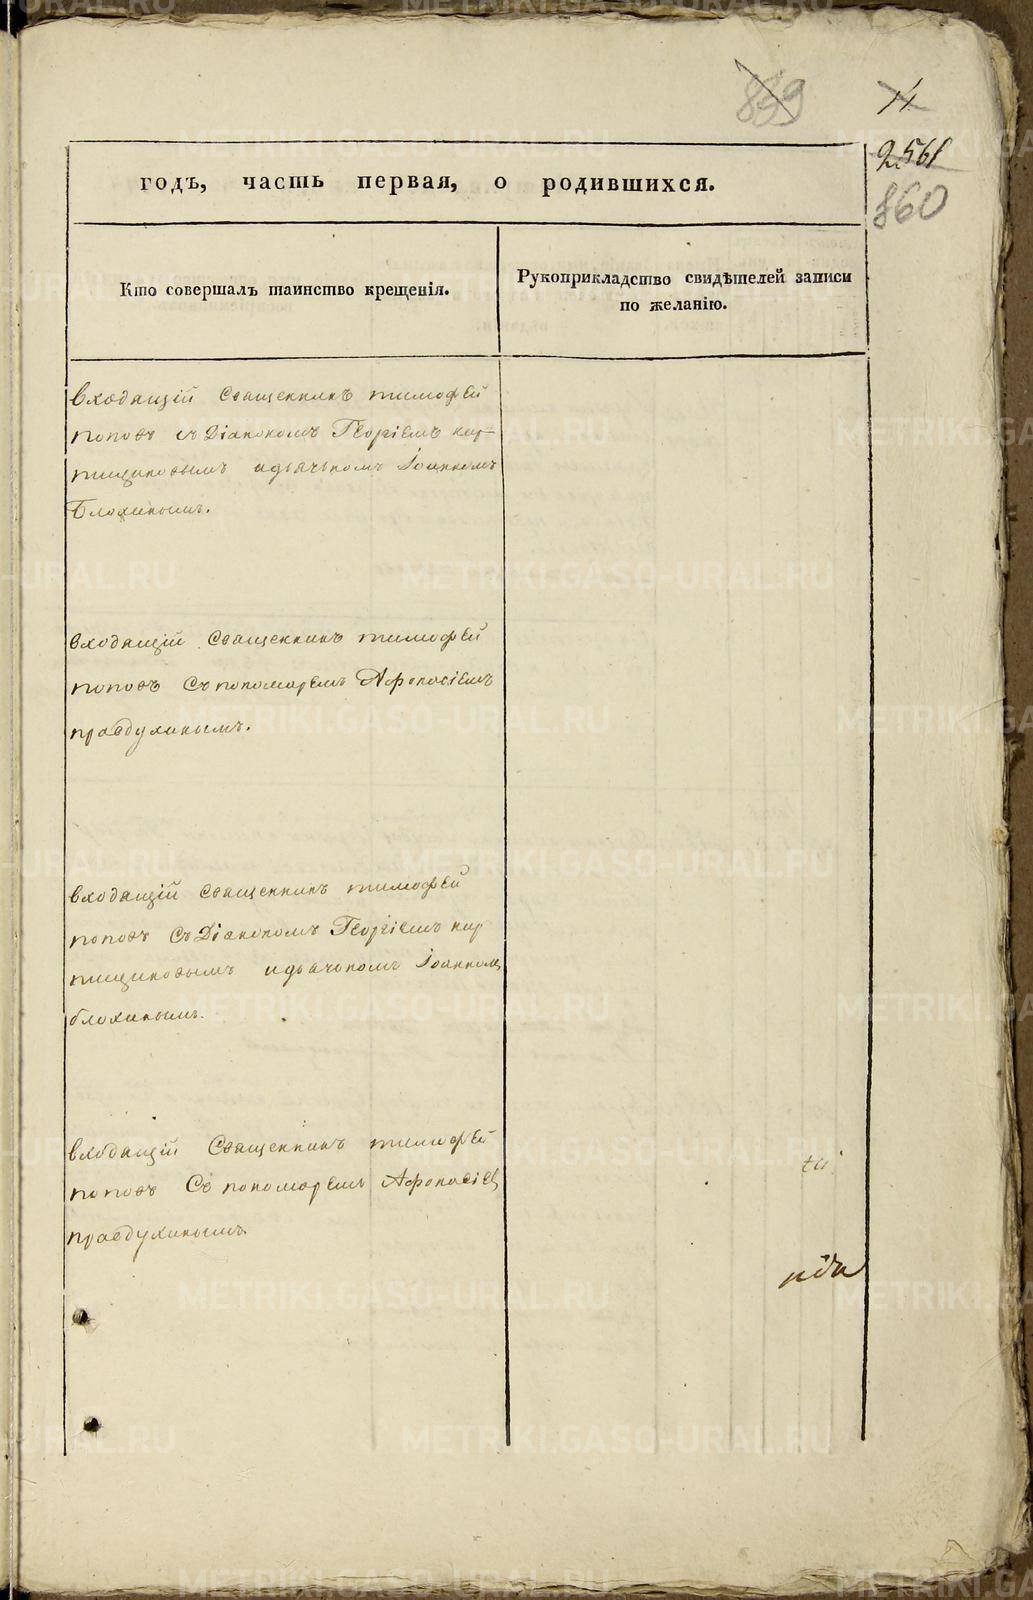 839
11
2561
860
годъ, часть первая, о родившихся.
Кто совершалъ таинство крещенія.
Рукоприкладство свидѣтелей записи
по желанію.
входящій священникъ тимофей
поповъ съ Діакономъ Георгіемъ кир-
пищиковымъ идьячькомъ Іоанномъ
Блохинымъ.
входящій священникъ тимофей
поповъ съ пономаремъ Афонасіемъ
правдухинымъ.
входящій священникъ тимофей
поповъ съ Діакономъ Георгіемъ кир
пищиковымъ идьячькомъ Іоанномъ
блохинымъ.
входящій священникъ тимофей
поповъ съ пономаремъ Афонасіемъ
правдухинымъ.
METRIKI.GASO-URAL.RU